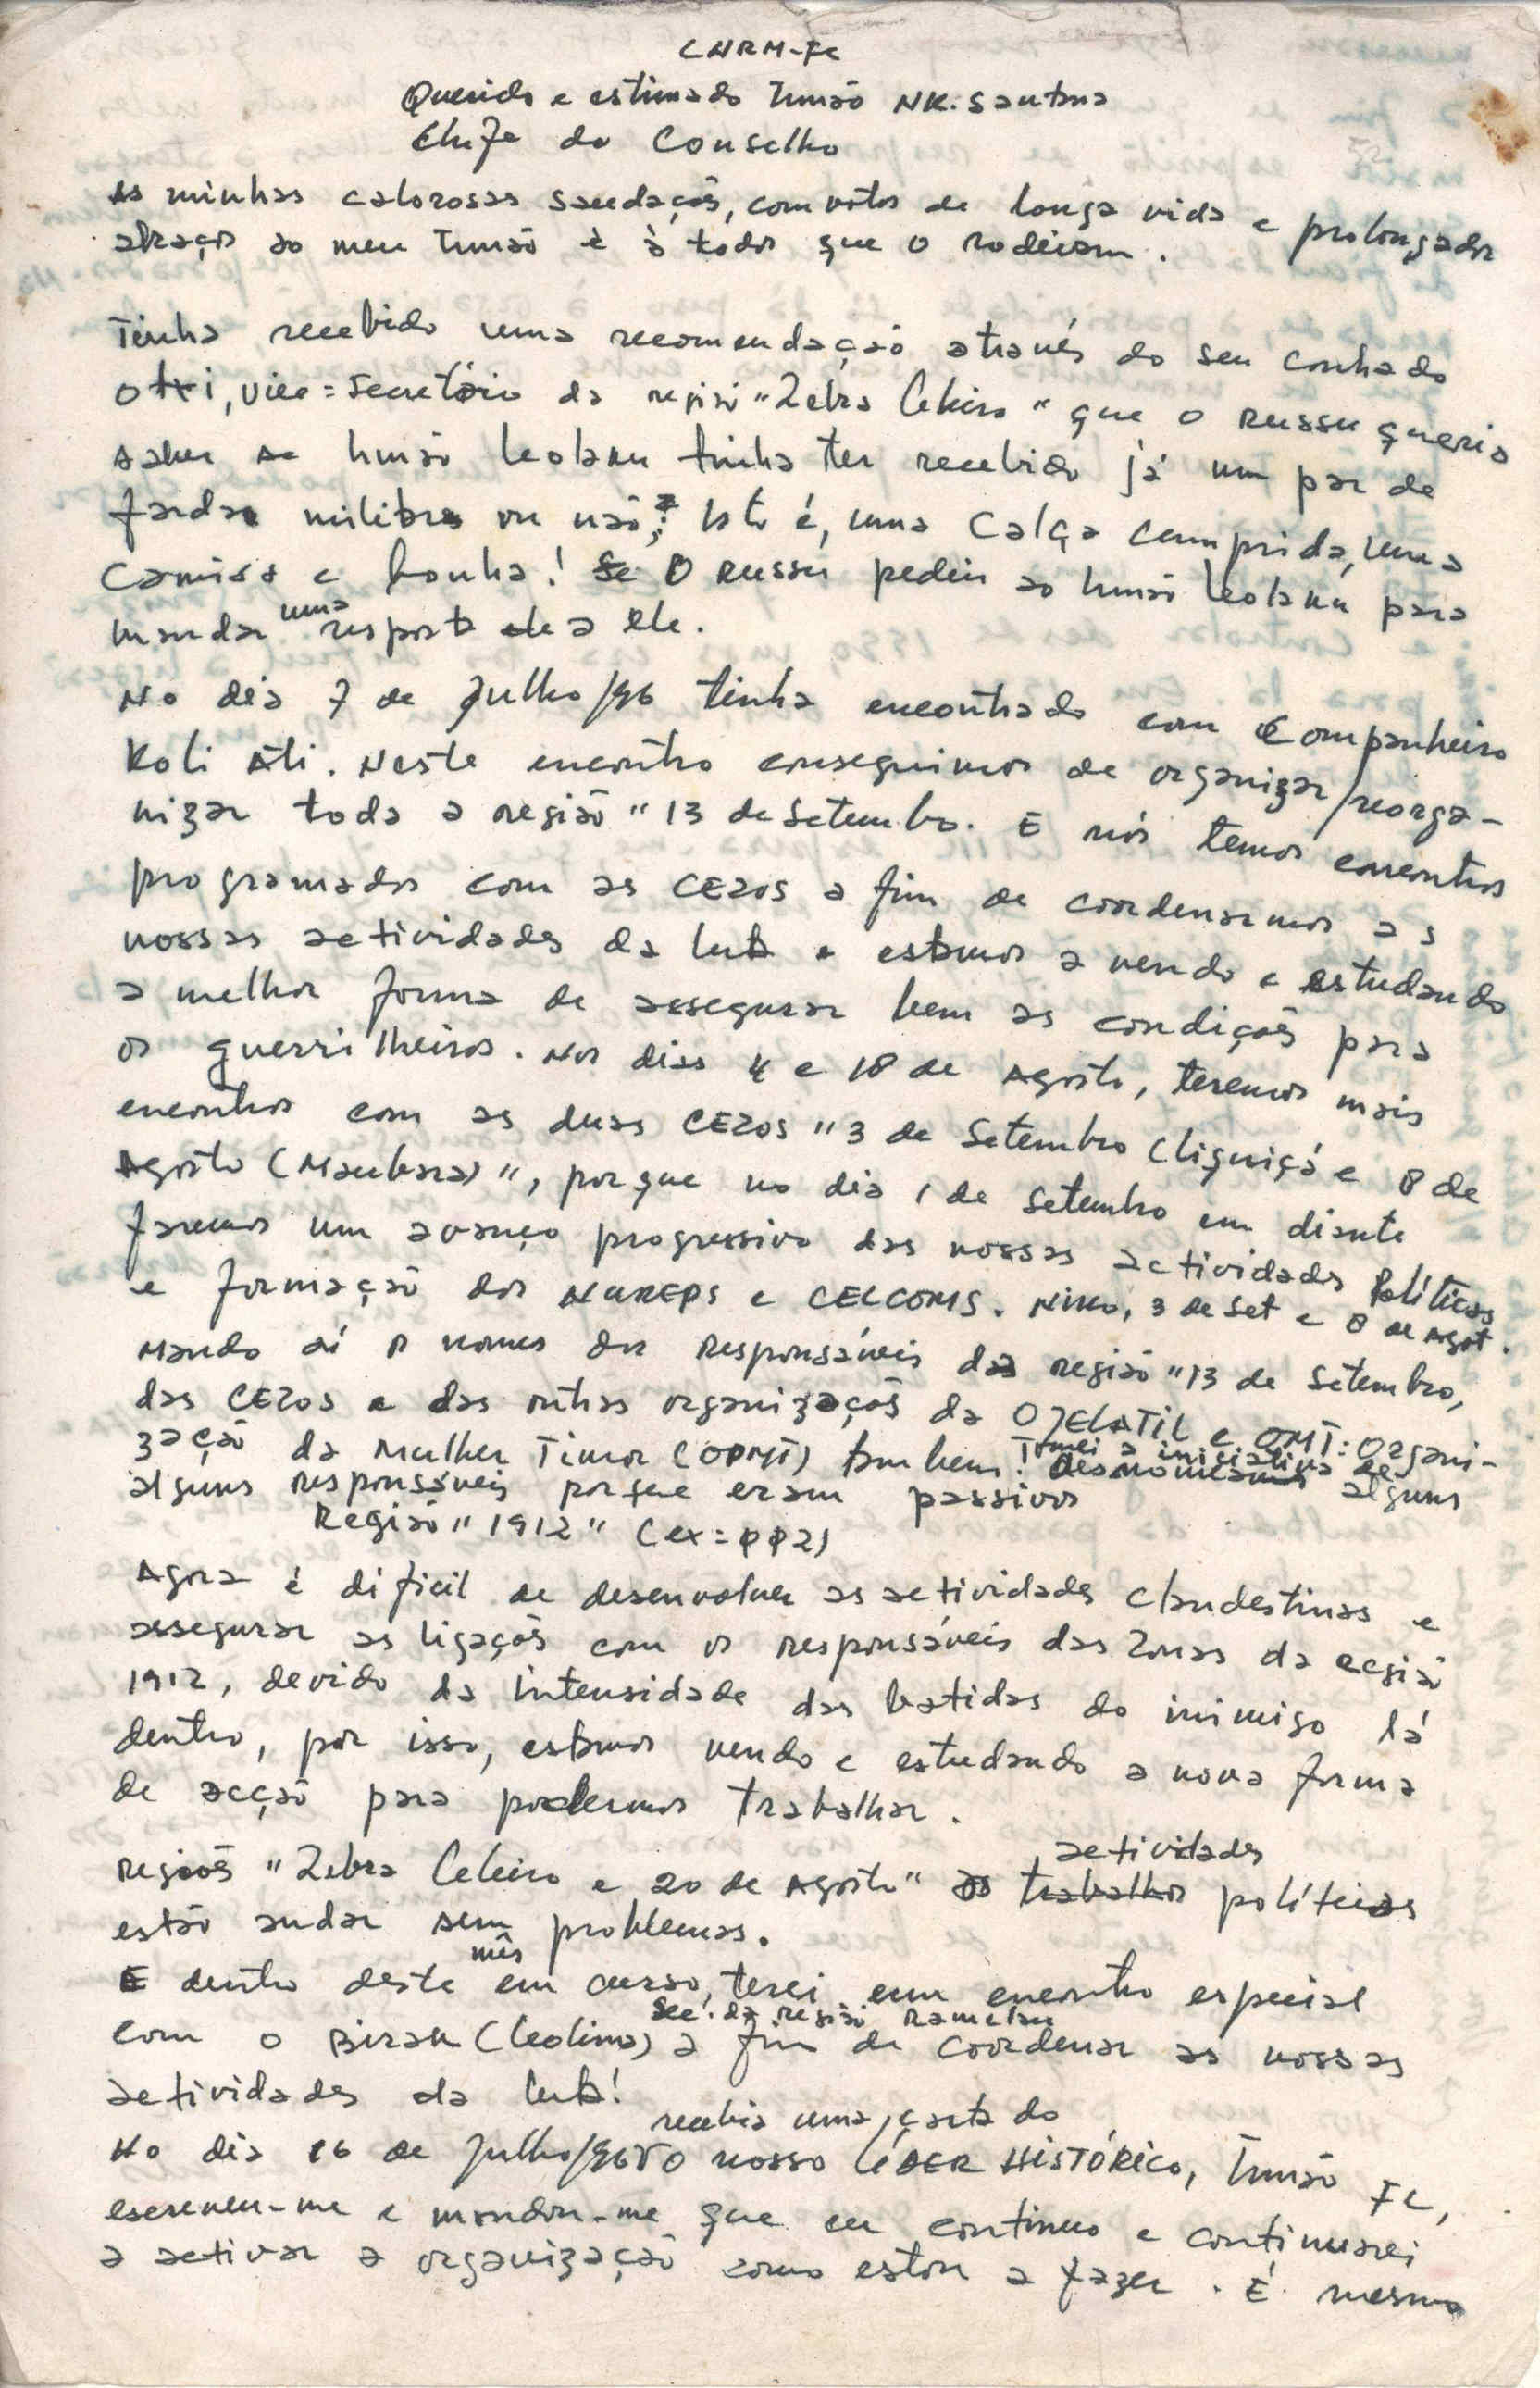 CNRM-FC
Querido e estimado Irmão NK. Santana
Chefe do Conselho
As minhas calorosas saudações, com votos de longa vida e prolongados
abraços ao meu Irmão e à todos que o rodeiam.
Tinha recebido uma recomendação através do seu cunhado
Oxi, vice=secretário da região "Zebra Celeiro" que o Russu queria
saber se Irmão Leolaku tinha ter recebido já um par de
fardas militares ou não; Isto é, uma calça cumprida, uma
camisa e bonha! O Russu pediu ao Irmão Leolaku para
mandar uma resposta a ele.
No dia 7 de Julho/96 tinha encontrado com Companheiro
Koli Ati. Neste encontro conseguimos de organizar/reorga-
nizar toda a região "13 de Setembro. E nós temos encontros
programados com as CEZOS a fim de coordenarmos as
nossas actividades da luta e estamos a vendo e estudando
a melhor forma de assegurar bem as condições para
os guerrilheiros. Nos dias 4 e 18 de Agosto, teremos mais
encontros com as duas CEZOS "3 de Setembro (Liquiçá e 8 de
Agosto (Maubara)", porque no dia 1 de Setembro em diante
faremos um avanço progressivo das nossas actividades Políticas
e formação dos NUREPS e CELCOMS. Niko, 3 de Set e 8 de Agost.
Mando aí os nomes dos Responsáveis das região "13 de Setembro,
das CEZOS e das outras organizações da OJELATIL e OMT: Organi-
zação da Mulher Timor (OPMT) também. Tomei a iniciativa de
alguns responsáveis porque eram passivos alguns
Região "1912" (ex=PP2)
Agora é dificil de desenvolver as actividades clandestinas e
assegurar as ligações com os responsáveis das zonas da região
1912, devido da intensidade das batidas do inimigo lá
dentro, por isso, estamos vendo e estudando a nova forma
de acção para podermos trabalhar.
Regiões "Zebra Celeiro e 20 de Agosto" as trabalhos actividades políticas
estão andar sem problemas.
E dentro deste mês em curso, terei um encontro especial
com o Birak (Leolima) Sec. da região Ramelau a fim de coordenar as nossas
actividades da luta!
No dia 16 de Julho/96 recebia uma carta do o nosso LÍDER HISTÓRICO, Irmão FC,
escreveu-me e mandou-me que eu continuo e continuarei
a activar a organização como estou a fazer. É mesmo